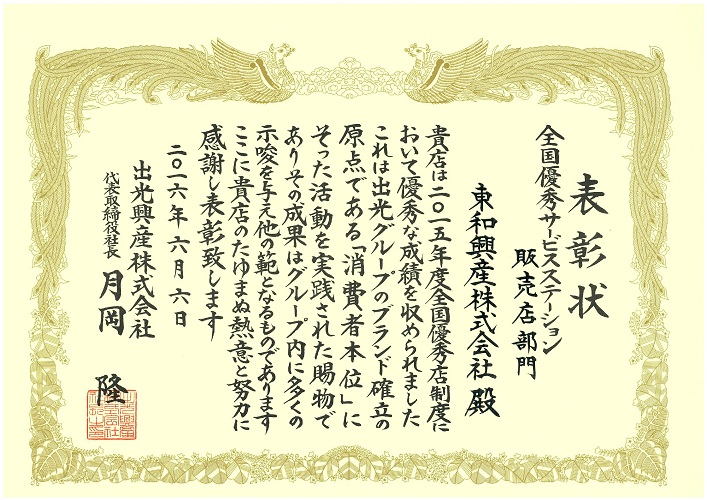 表彰状
全国優秀サービスステーション
販売店部門
東和興産株式会社 殿
貴店は二〇一五年度全国優秀店制度に
おいて優秀な成績を収められました
これは出光グループのブランド確立の
原点である「消費者本位」に
そった活動を実践された賜物で
ありその成果はグループ内に多くの
示唆を与え他の範となるものであります
ここに貴店のたゆまぬ熱意と努力に
感謝し表彰致します
二〇一六年六月六日
出光興産株式会社
代表取締役社長 月岡 隆